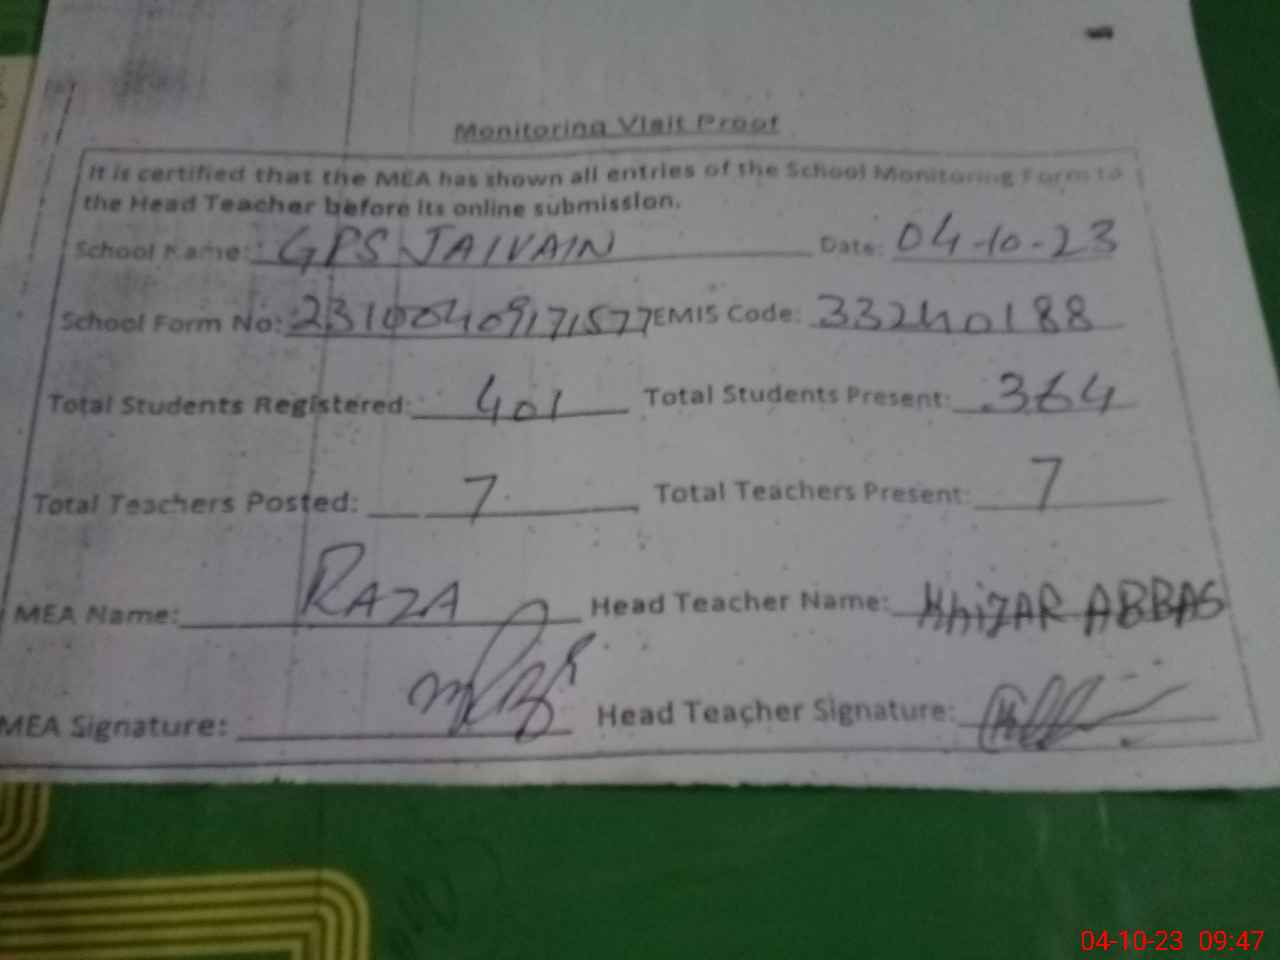 Monitoring Visit Proof
It is certified that the MEA has shown all entries of the School Monitoring Form to
the Head Teacher before its online submission.
School Name: GPS JAIVAIN Date: 04-10-23
School Form No: 23100409171577 EMIS Code: 33240188
Total Students Registered: 401 Total Students Present: 364
Total Teachers Posted: 7 Total Teachers Present: 7
MEA Name: RAZA Head Teacher Name: KHIZAR ABBAS
MEA Signature: Head Teacher Signature:
04-10-23 09:47